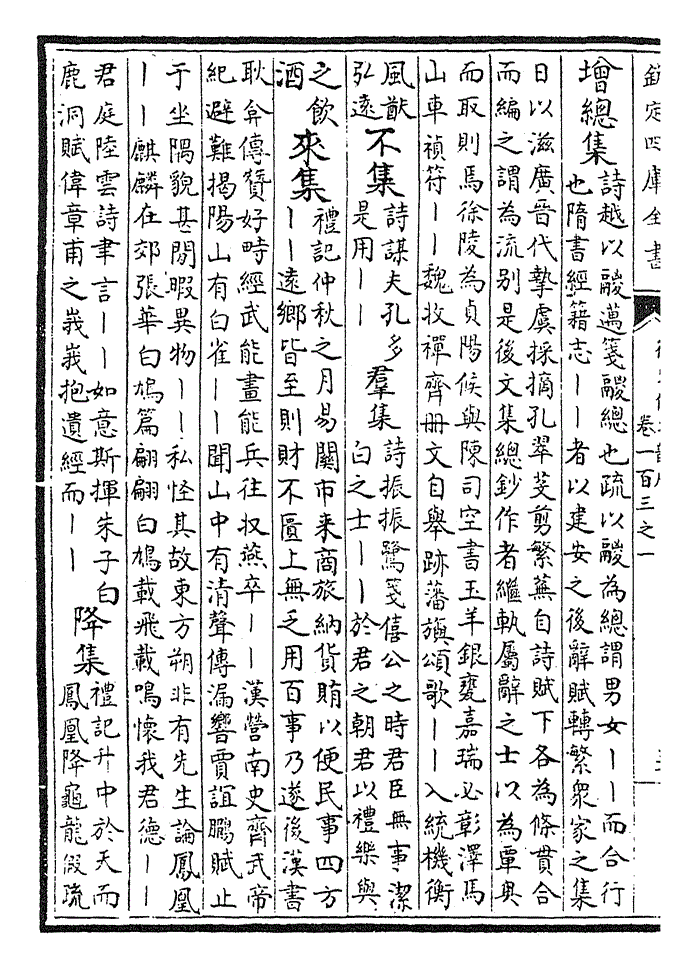 欽定四庫全書
卷一百三之一
增總集
詩越以鬷邁箋鬷總也疏以鬷為總謂男女丨丨而合行
也隋書經籍志丨丨者以建安之後辭賦轉繁衆家之集
日以滋廣晉代摯虞採摘孔翠芟剪繁蕪自詩賦下各為條貫合
而編之謂為流别是後文集總鈔作者繼軌屬辭之士以為覃奥
而取則焉徐陵為貞陽侯與陳司空書玉羊銀甕嘉瑞必彰澤馬
山車禎符丨丨魏收禪齊冊文自舉跡藩旟頌歌丨丨入統機衡
風猷
弘遠
不集
詩謀夫孔多
是用丨丨
羣集
詩振振鷺箋僖公之時君臣無事潔
白之士丨丨於君之朝君以禮樂與
之飲
酒
來集
禮記仲秋之月易關市来商旅納貨賄以便民事四方
丨丨遠鄉皆至則財不匱上無乏用百事乃遂後漢書
耿弇傳贊好畤經武能畫能兵往収燕卒丨丨漢營南史齊武帝
紀避難揭陽山有白雀丨丨聞山中有清聲傳漏響賈誼鵩賦止
于坐隅貌甚閒暇異物丨丨私怪其故東方朔非有先生論鳳凰
丨丨麒麟在郊張華白鳩篇翩翩白鳩載飛載鳴懷我君德丨丨
君庭陸雲詩聿言丨丨如意斯揮朱子白
鹿洞賦偉章甫之峩峩抱遺經而丨丨
降集
禮記升中於天而
鳳凰降龜龍假疏